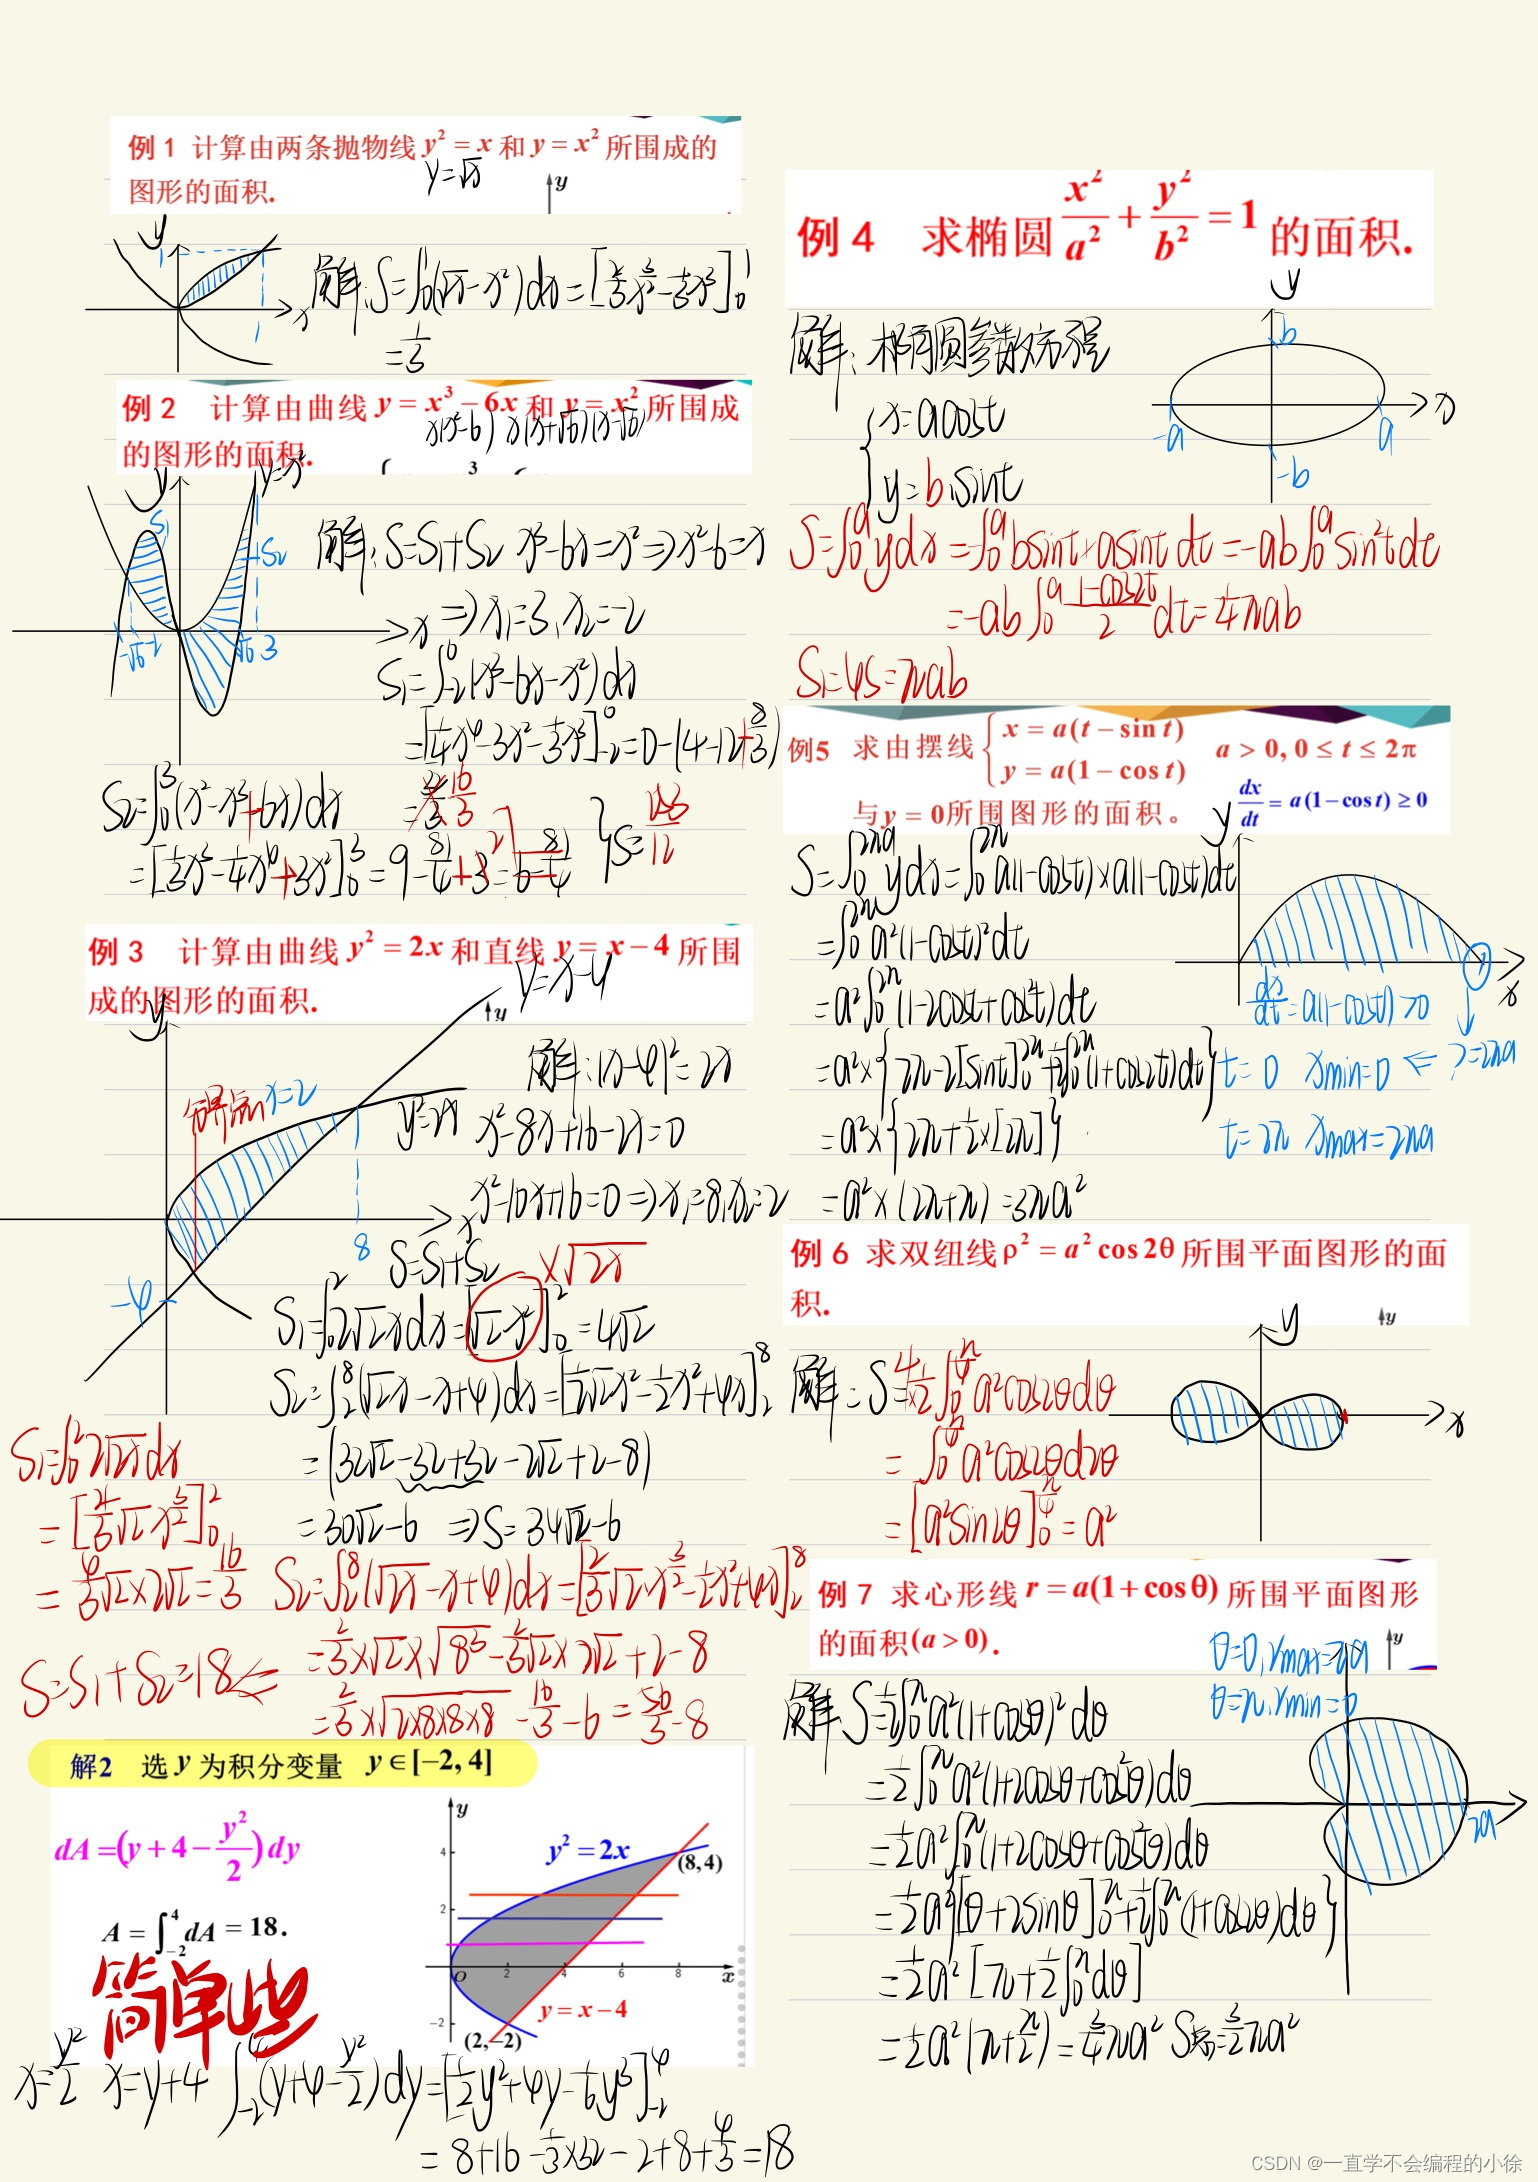 例 1 计算由两条抛物线 y² = x 和 y = x² 所围成的
y=√x
图形的面积.
y
y
1
x
解: S=∫₀¹(√x-x²)dx=[2/3x^(3/2)-1/3x³]₀¹
=1/3
例 2 计算由曲线 y = x³ − 6x 和 y = x² 所围成
x(x²-6) x(x+√6)(x-√6)
的图形的面积.
y
y=x²
S₁
S₂
-√6 -2 √6 3
x
解: S=S₁+S₂ x³-6x=x²⇒x²-6=x
⇒x₁=3, x₂=-2
S₁=∫₋₂⁰(x³-6x-x²)dx
=[1/4x⁴-3x²-1/3x³]₋₂⁰=0-(4-12+8/3)
=16/3
S₂=∫₀³(x²-x³+6x)dx
=[1/3x³-1/4x⁴+3x²]₀³=9-81/4+3
} S=253/12
例 3 计算由曲线 y² = 2x 和直线 y = x − 4 所围
y=x-4
成的图形的面积.
y
y
分界点 x=2
y²=2x
8
-4
x
解: (x-4)²=2x
x²-8x+16-2x=0
x²-10x+16=0⇒x₁=8, x₂=2
S=S₁+S₂ ×√2x
S₁=∫₀²2√2xdx=[√2x²]₀²=4√2
S₂=∫₂⁸(√2x-x+4)dx=[1/2√2x²-1/2x²+4x]₂⁸
=(32√2-32+32-2√2+2-8)
=30√2-6 ⇒S=34√2-6
S₁=∫₀²2√2xdx
=[4/3√2x^(3/2)]₀²
=4/3√2×2√2=16/3
S₂=∫₂⁸(√2x-x+4)dx=[2/3√2·x^(3/2)-1/2x²+4x]₂⁸
=2/3×√2×√8³-2/3√2×2√2+2-8
=2/3×√2×8×8×8-16/3-6=56/3-8
S=S₁+S₂=18⇐
解2 选 y 为积分变量 y ∈ [−2, 4]
dA = (y + 4 − y²/2) dy
A = ∫₋₂⁴ dA = 18.
简单些
y
4
2
-2
O 2 4 6 8 x
y² = 2x
(8,4)
y = x − 4
(2,−2)
x=y²/2 x=y+4 ∫₋₂⁴(y+4-y²/2)dy=[1/2y²+4y-1/6y³]₋₂⁴
=8+16-1/3×32-2+8+4/3=18
例 4 求椭圆 x²/a² + y²/b² = 1 的面积.
解: 椭圆参数方程
{x=acost
y=bsint
y
b
-a a
-b
x
S=∫₀ᵃydx=-∫₀ᵃbsint·asint dt=-ab∫₀ᵃsin²tdt
=-ab∫₀ᵃ(1-cos2t)/2 dt=1/4πab
S₁=4S=πab
例5 求由摆线 { x = a(t − sin t) y = a(1 − cos t) a > 0, 0 ≤ t ≤ 2π
与y = 0所围图形的面积。 dx/dt = a(1−cost) ≥ 0
y
S=∫₀^(2πa)ydx=∫₀^(2π)a(1-cost)×a(1-cost)dt
=∫₀^(2π)a²(1-cost)²dt
=a²∫₀^(2π)(1-2cost+cos²t)dt
=a²×{2π-2[sint]₀^(2π)+1/2∫₀^(2π)(1+cos2t)dt}
=a²×{2π+1/2×[2π]}
=a²×(2π+π)=3πa²
x
dx/dt=a(1-cost)>0
t=0 xmin=0 ⇐ ?=2πa
t=2π xmax=2πa
例 6 求双纽线 ρ² = a² cos 2θ 所围平面图形的面
积.
y
y
x
解: S=4×1/2∫₀^(π/4)a²cos2θdθ
=∫₀^(π/4)a²cos2θd2θ
=[a²sin2θ]₀^(π/4)=a²
例 7 求心形线 r = a(1 + cos θ) 所围平面图形
的面积(a > 0).
y
θ=0, rmax=2a
θ=π, rmin=0
2a
解 S=1/2∫₀^π a²(1+cosθ)²dθ
=1/2∫₀^π a²(1+2cosθ+cos²θ)dθ
=1/2a²∫₀^π(1+2cosθ+cos²θ)dθ
=1/2a²{[θ+2sinθ]₀^π+1/2∫₀^π(1+cos2θ)dθ}
=1/2a²[π+1/2∫₀^π dθ]
=1/2a²(π+π/2)=3/4πa² S总=3/2πa²
CSDN @一直学不会编程的小徐